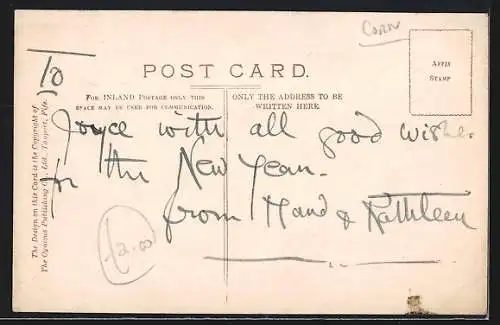 Corn
POST CARD.
AFFIX
STAMP
FOR INLAND POSTAGE ONLY THIS
SPACE MAY BE USED FOR COMMUNICATION.
ONLY THE ADDRESS TO BE
WRITTEN HERE.
The Design on this Card is the Copyright of
The Oynom Publishing Co., Ltd., Tayport, Fife.
To
Joyce with all good wishes.
for the New Year.
from Maud & Kathleen